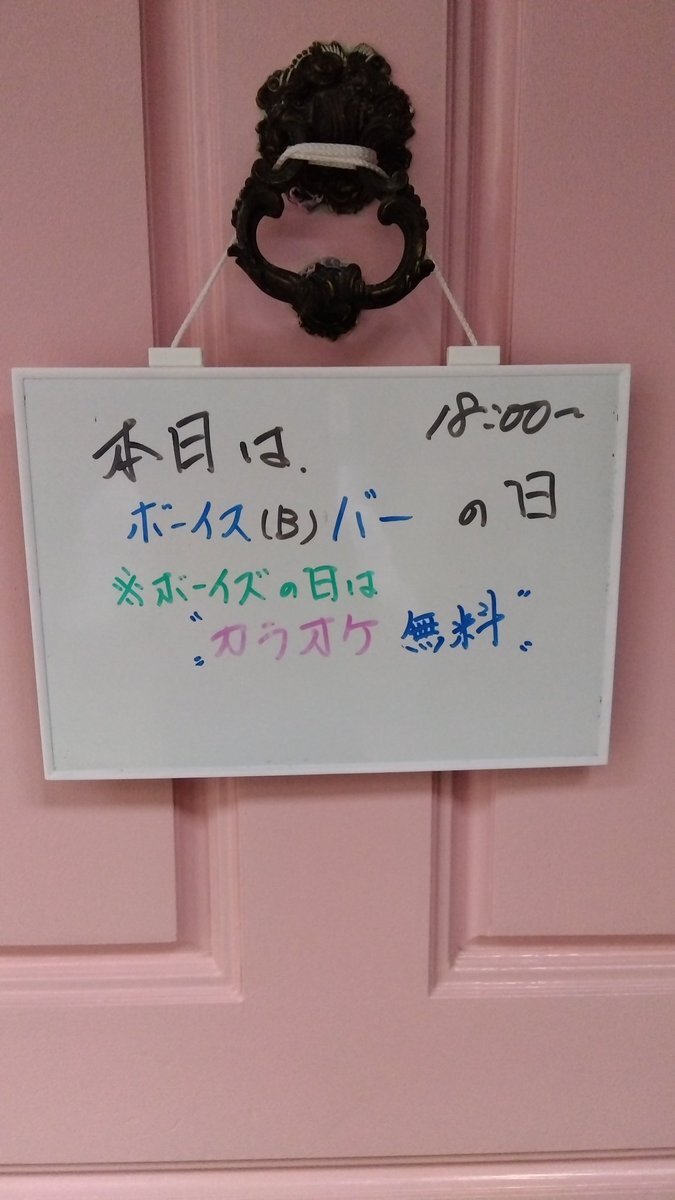 18:00~
本日は.
ボーイズ(B)バー の日
※ボーイズの日は
"カラオケ 無料"